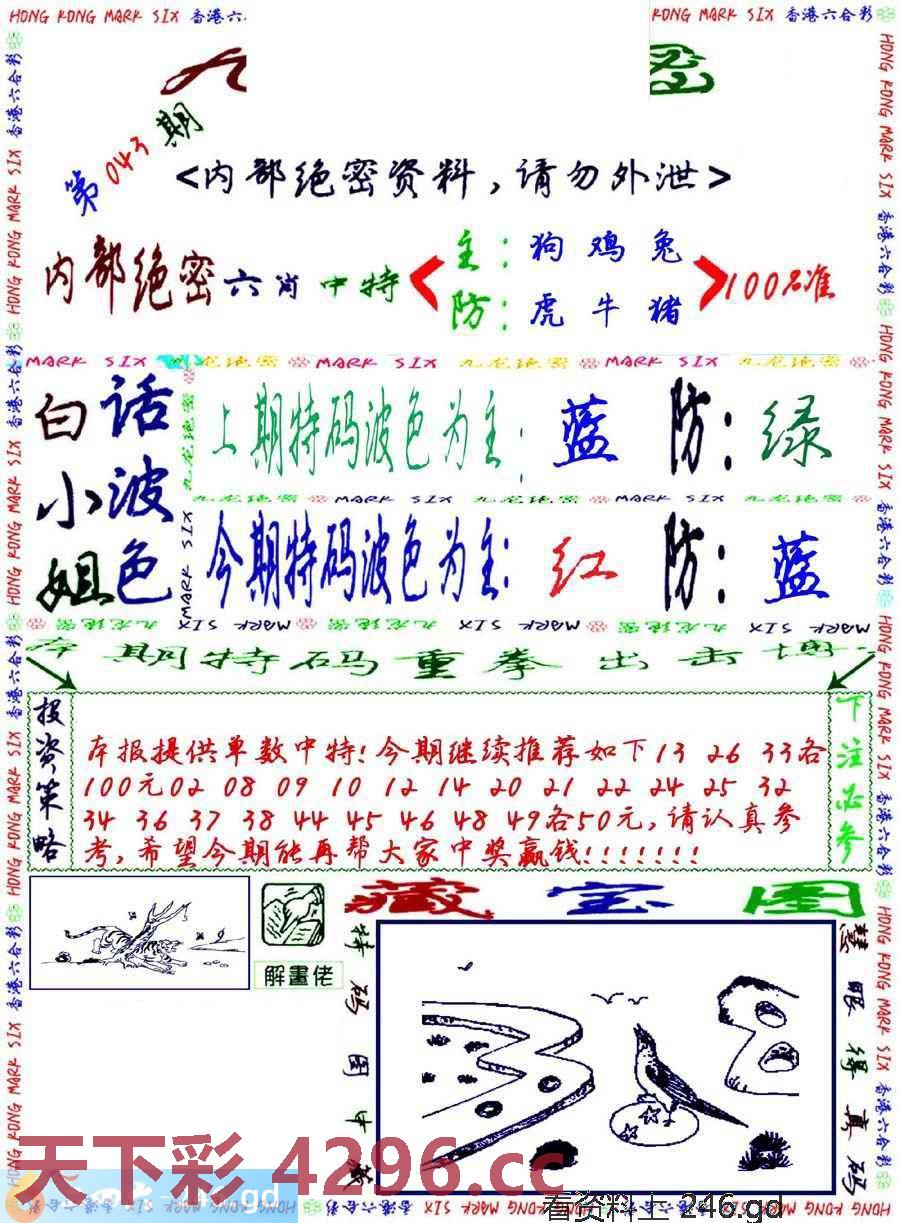 HONG KONG MARK SIX 香港六
KONG MARK SIX 香港六合彩
第043期
<内部绝密资料,请勿外泄>
内部绝密六肖中特
主:狗鸡兔
防:虎牛猪
100%准
MARK SIX 九龙绝密 MARK SIX 九龙绝密 MARK SIX 九龙绝密
白话
小波
姐色
上期特码波色为主:蓝 防:绿
九龙绝密 MARK SIX 九龙绝密 MARK SIX
今期特码波色为主:红 防:蓝
九龙绝密 MARK SIX 九龙绝密 MARK SIX 九龙绝密 MARK SIX
本期特码重拳出击
投资策略
本报提供单数中特!今期继续推荐如下13 26 33各
100元02 08 09 10 12 14 20 21 22 24 25 32
34 36 37 38 44 45 46 48 49各50元,请认真参
考,希望今期能再帮大家中奖赢钱!!!!!!!
下注必参
藏宝图
解畫佬
特码图中藏
慧眼得真码
天下彩4296.cc
看资料上 246.gd